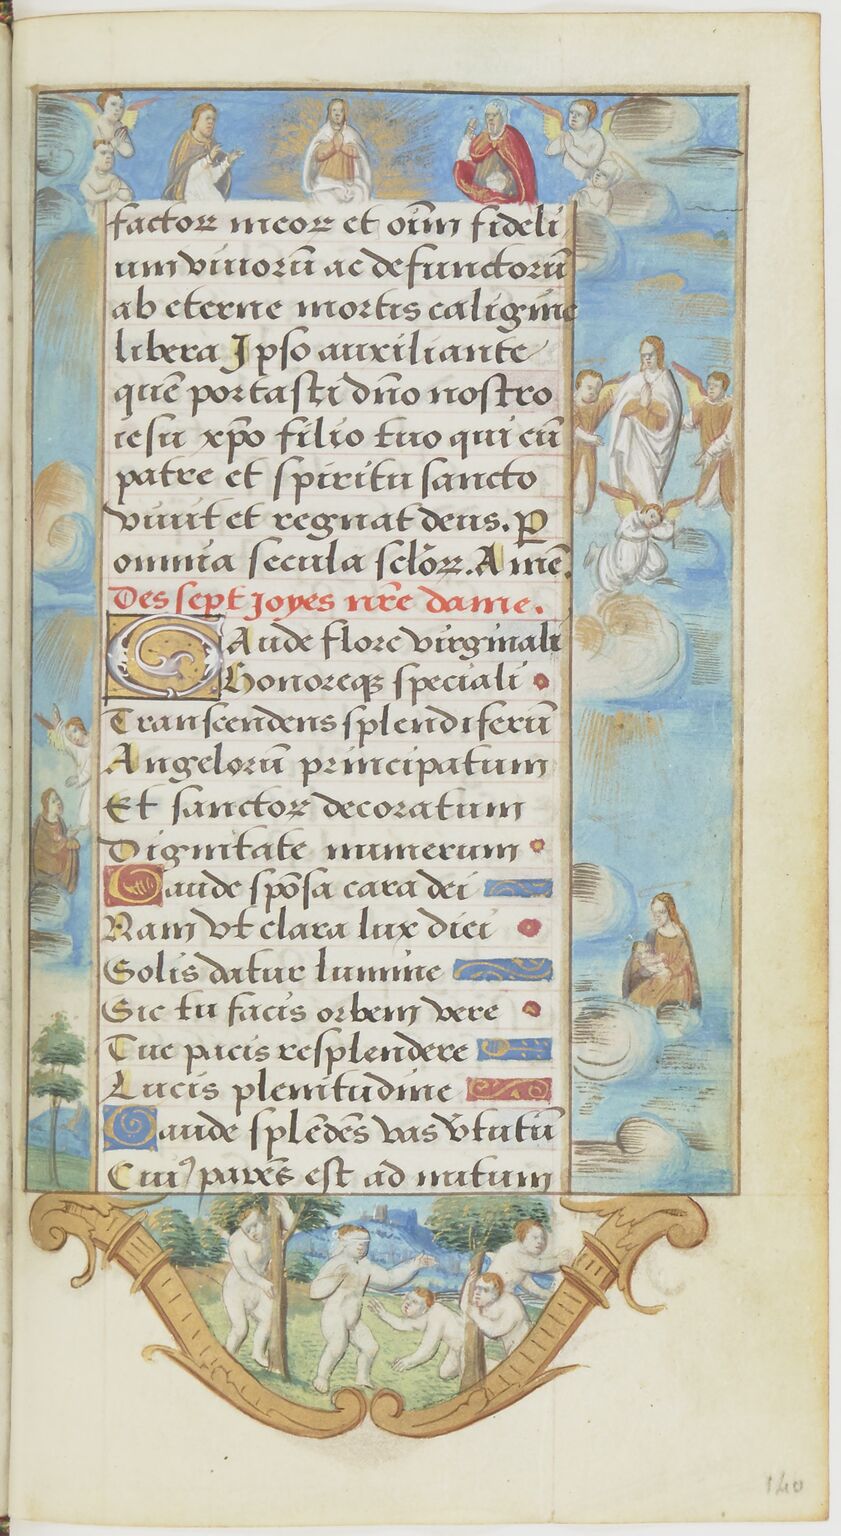 factoꝝ meoꝝ et oīm fideli
um viuorū ac defunctorū
ab eterne mortis caligine
libera Ipso auxiliante
quē portasti dn̄o nostro
iesu xp̄o filio tuo qui cū
patre et spiritu sancto
viuit et regnat deus. P̲
omnia secula scl̄oꝝ. Amē.
Des sept joyes nr̄e dame.
Gaude flore virginali
Honoreqꝫ speciali
Transcendens splendiferū
Angelorū principatum
Et sanctoꝝ decoratum
Dignitate numerum
Gaude spōsa cara dei
Nam vt clara lux diei
Solis datur lumine
Sic tu facis orbem vere
Tue pacis resplendere
Lucis plenitudine
Gaude splēdēs vas v̄tutū
Cuiꝰ parēs est ad nutum
140